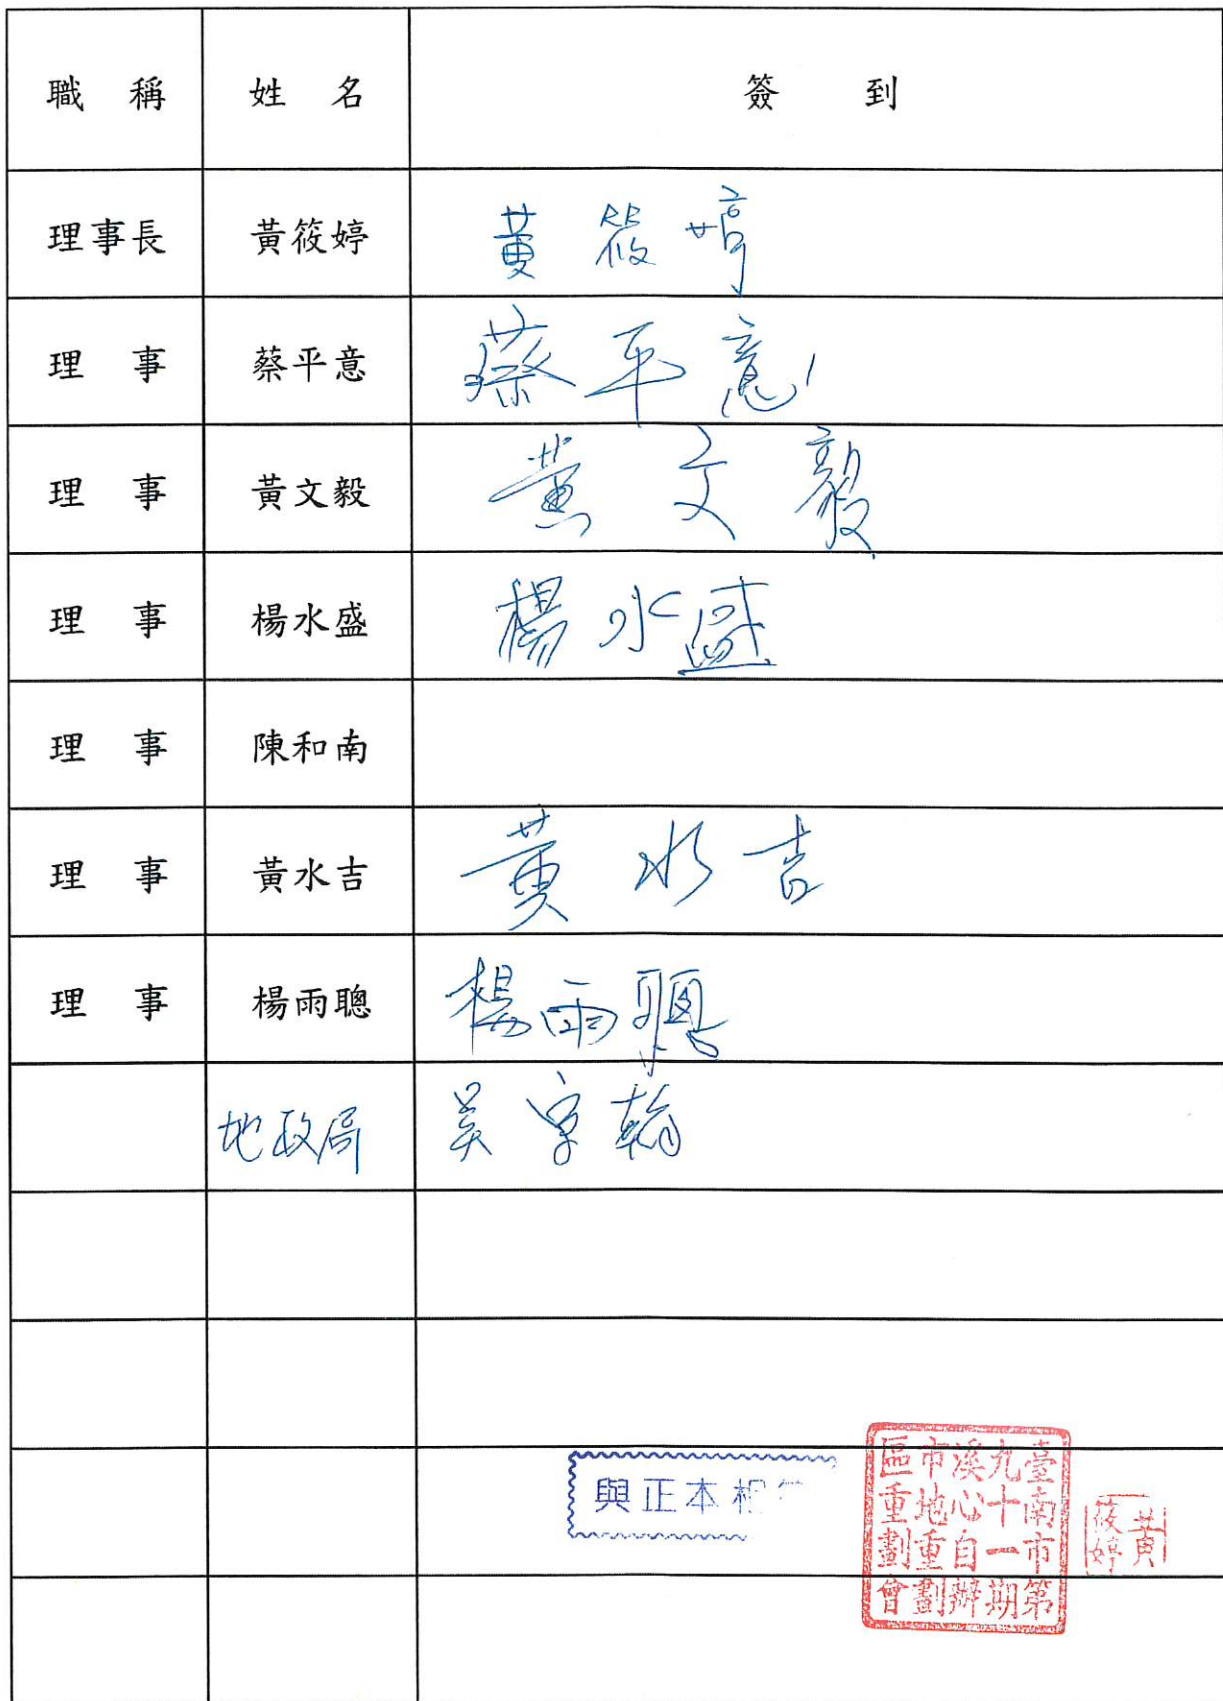 職 稱 姓 名 簽 到
理事長 黃筱婷 黃筱婷
理 事 蔡平意 蔡平意
理 事 黃文毅 黃文毅
理 事 楊水盛 楊水盛
理 事 陳和南
理 事 黃水吉 黃水吉
理 事 楊雨聰 楊雨聰
地政局 吳宇翰
與正本相
臺南市第
九十一期
溪心自辦
市地重劃
區重劃會
黃
筱婷